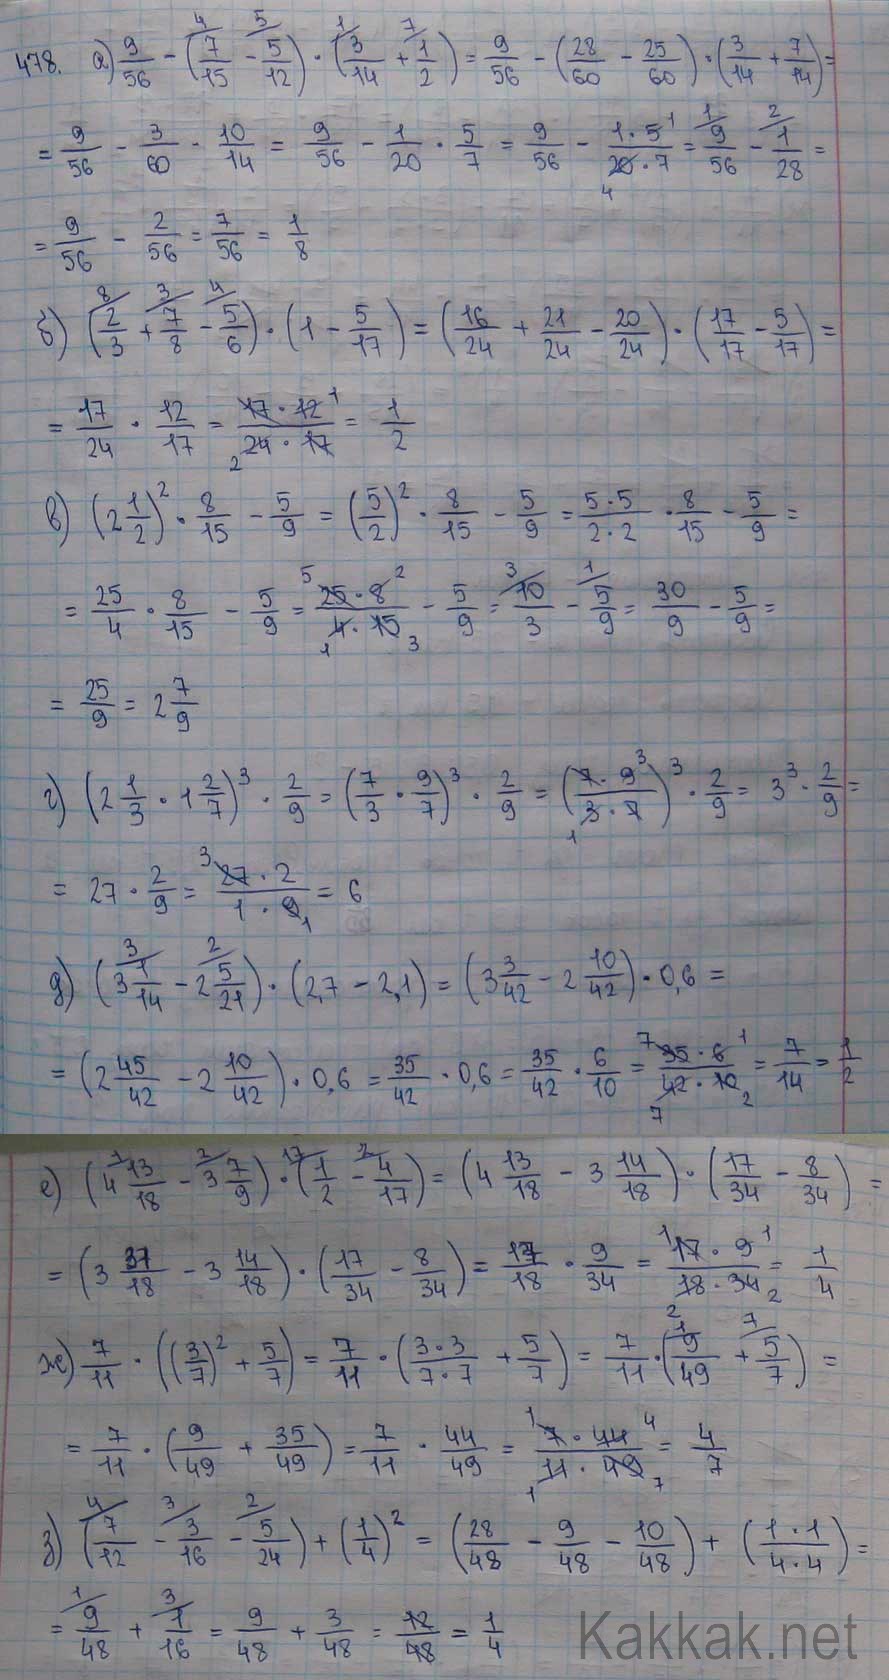 478. а) 9/56 - (7/15 - 5/12) · (3/14 + 1/2) = 9/56 - (28/60 - 25/60) · (3/14 + 7/14) =
= 9/56 - 3/60 - 10/14 = 9/56 - 1/20 · 5/7 = 9/56 - 1·5/20·7 = 9/56 - 1/28 =
= 9/56 - 2/56 = 7/56 = 1/8
б) (2/3 + 7/8 - 5/6) · (1 - 5/17) = (16/24 + 21/24 - 20/24) · (17/17 - 5/17) =
= 17/24 · 12/17 = 17·12/24·17 = 1/2
в) (2 1/2)² · 8/15 - 5/9 = (5/2)² · 8/15 - 5/9 = 5·5/2·2 · 8/15 - 5/9 =
= 25/4 · 8/15 - 5/9 = 25·8/4·15 - 5/9 = 10/3 - 5/9 = 30/9 - 5/9 =
= 25/9 = 2 7/9
г) (2 1/3 · 1 2/7)³ · 2/9 = (7/3 · 9/7)³ · 2/9 = (7·9/3·7)³ · 2/9 = 3³ · 2/9 =
= 27 · 2/9 = 27·2/1·9 = 6
д) (3 1/14 - 2 5/21) · (2,7 - 2,1) = (3 3/42 - 2 10/42) · 0,6 =
= (2 45/42 - 2 10/42) · 0,6 = 35/42 · 0,6 = 35/42 · 6/10 = 35·6/42·10 = 7/14 = 1/2
е) (4 13/18 - 3 7/9) · (1/2 - 4/17) = (4 13/18 - 3 14/18) · (17/34 - 8/34) =
= (3 31/18 - 3 14/18) · (17/34 - 8/34) = 17/18 · 9/34 = 17·9/18·34 = 1/4
ж) 7/11 · ((3/7)² + 5/7) = 7/11 · (3·3/7·7 + 5/7) = 7/11 · (9/49 + 5/7) =
= 7/11 · (9/49 + 35/49) = 7/11 · 44/49 = 7·44/11·49 = 4/7
з) (7/12 - 3/16 - 5/24) + (1/4)² = (28/48 - 9/48 - 10/48) + (1·1/4·4) =
= 9/48 + 1/16 = 9/48 + 3/48 = 12/48 = 1/4
Kakkak.net